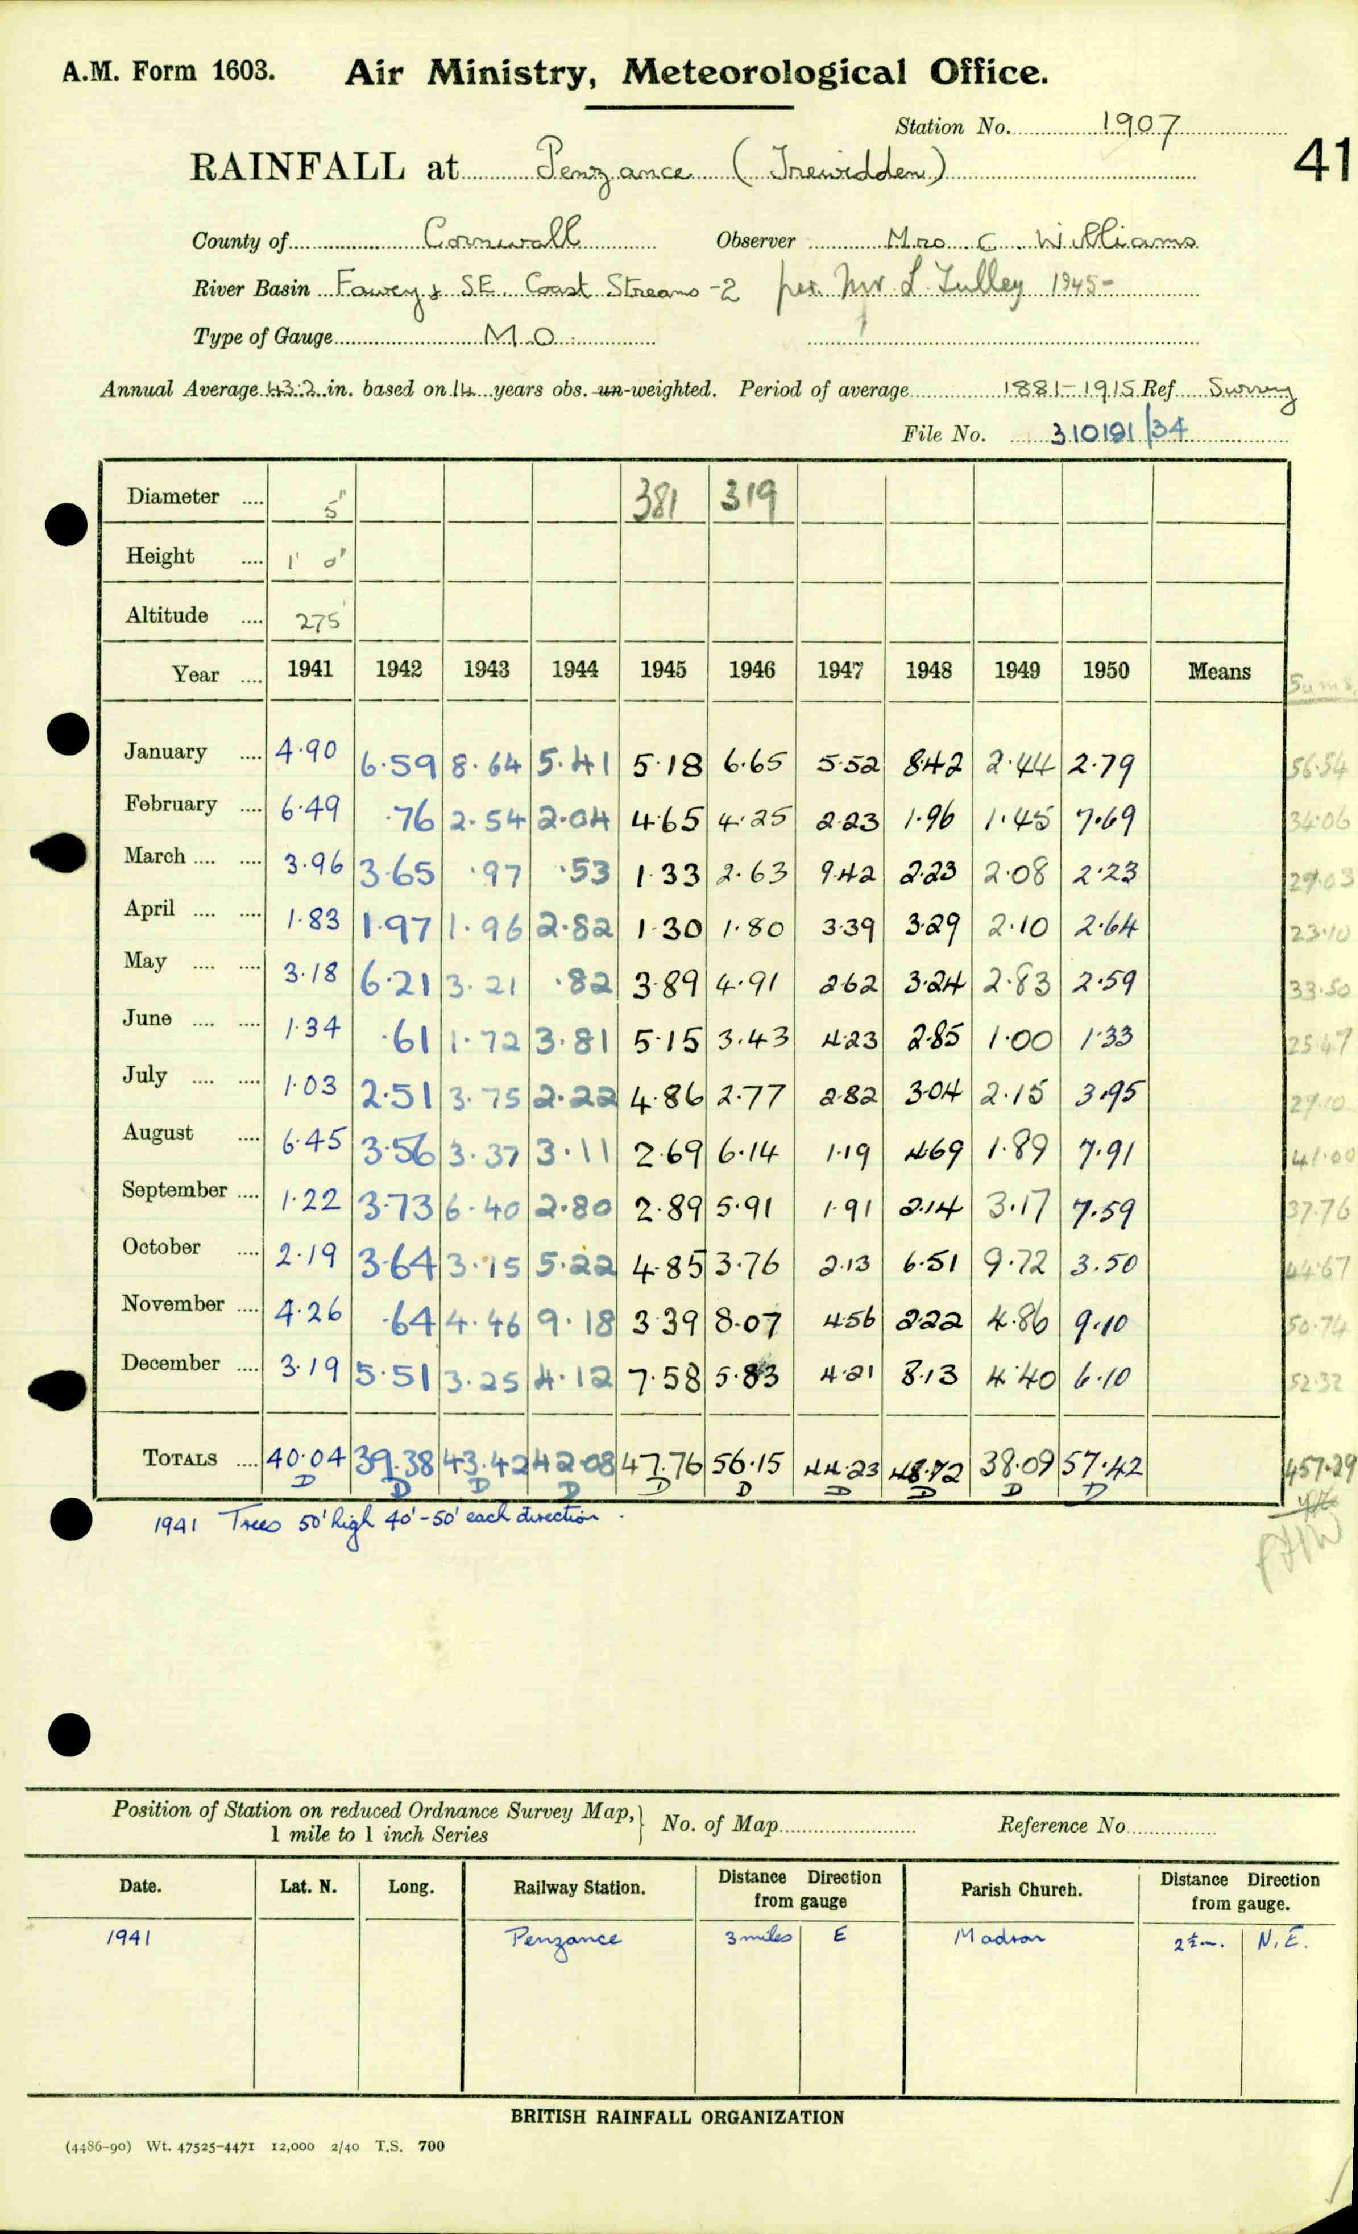 A.M. Form 1603. Air Ministry, Meteorological Office.
Station No. 1907
41
RAINFALL at Penzance (Trewidden)
County of Cornwall Observer Mrs C. Williams
River Basin Fowey & S.E. Coast Streams -2 per Mr L. Tulley 1945-
Type of Gauge M.O.
Annual Average 43.2 in. based on 14 years obs. un-weighted. Period of average 1881-1915 Ref Survey
File No. 310191/34
Diameter .... 5" 381 319
Height .... 1' 0"
Altitude .... 275'
Year .... 1941 1942 1943 1944 1945 1946 1947 1948 1949 1950 Means Sums
January .... 4.90 6.59 8.64 5.41 5.18 6.65 5.52 8.42 2.44 2.79 56.54
February .... 6.49 .76 2.54 2.04 4.65 4.25 2.23 1.96 1.45 7.69 34.06
March .... .... 3.96 3.65 .97 .53 1.33 2.63 9.42 2.23 2.08 2.23 29.03
April .... .... 1.83 1.97 1.96 2.82 1.30 1.80 3.39 3.29 2.10 2.64 23.10
May .... .... 3.18 6.21 3.21 .82 3.89 4.91 2.62 3.24 2.83 2.59 33.50
June .... .... 1.34 .61 1.72 3.81 5.15 3.43 4.23 2.85 1.00 1.33 25.47
July .... .... 1.03 2.51 3.75 2.22 4.86 2.77 2.82 3.04 2.15 3.95 29.10
August .... 6.45 3.56 3.37 3.11 2.69 6.14 1.19 4.69 1.89 7.91 41.00
September .... 1.22 3.73 6.40 2.80 2.89 5.91 1.91 2.14 3.17 7.59 37.76
October .... 2.19 3.64 3.15 5.22 4.85 3.76 2.13 6.51 9.72 3.50 44.67
November .... 4.26 .64 4.46 9.18 3.39 8.07 4.56 2.22 4.86 9.10 50.74
December .... 3.19 5.51 3.25 4.12 7.58 5.83 4.21 8.13 4.40 6.10 52.32
TOTALS .... 40.04 39.38 43.42 42.08 47.76 56.15 44.23 48.72 38.09 57.42 457.29
D D D D D D D D D D
1941 Trees 50' high 40'-50' each direction.
Position of Station on reduced Ordnance Survey Map, } No. of Map Reference No.
1 mile to 1 inch Series
Date. Lat. N. Long. Railway Station. Distance Direction from gauge Parish Church. Distance Direction from gauge.
1941 Penzance 3 miles E Madron 2½m. N.E.
BRITISH RAINFALL ORGANIZATION
(4486-90) Wt. 47525-4471 12,000 2/40 T.S. 700